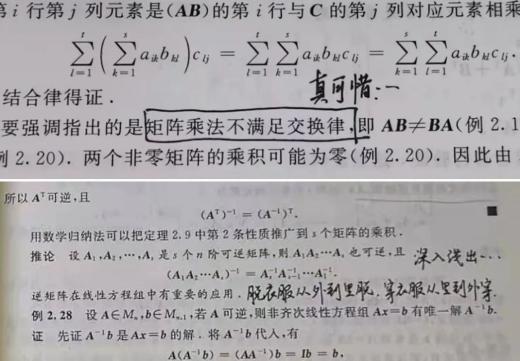 第 i 行第 j 列元素是(AB)的第 i 行与 C 的第 j 列对应元素相乘
\sum_{l=1}^{t}(\sum_{k=1}^{s} a_{ik}b_{kl})c_{lj} = \sum_{l=1}^{t}\sum_{k=1}^{s} a_{ik}b_{kl}c_{lj} = \sum_{k=1}^{s}\sum_{l=1}^{t} a_{ik}b_{kl}c_{lj}.
真可惜:一
结合律得证.
要强调指出的是矩阵乘法不满足交换律,即 AB≠BA(例 2.1
例 2.20). 两个非零矩阵的乘积可能为零(例 2.20). 因此由
所以 A^T 可逆,且
(A^T)^{-1} = (A^{-1})^T.
用数学归纳法可以把定理 2.9 中第 2 条性质推广到 s 个矩阵的乘积.
推论 设 A_1,A_2,⋯,A_s 是 s 个 n 阶可逆矩阵,则 A_1A_2⋯A_s 也可逆,且
深入浅出···
(A_1A_2⋯A_s)^{-1} = A_s^{-1}A_{s-1}^{-1}⋯A_1^{-1}.
逆矩阵在线性方程组中有重要的应用.
脱衣服从外到里脱,穿衣服从里到外穿
例 2.28 设 A∈M_n,b∈M_{n,1},若 A 可逆,则非齐次线性方程组 Ax=b 有唯一解 A^{-1}b.
证 先证 A^{-1}b 是 Ax=b 的解. 将 A^{-1}b 代人,有
A(A^{-1}b) = (AA^{-1})b = Ib = b,